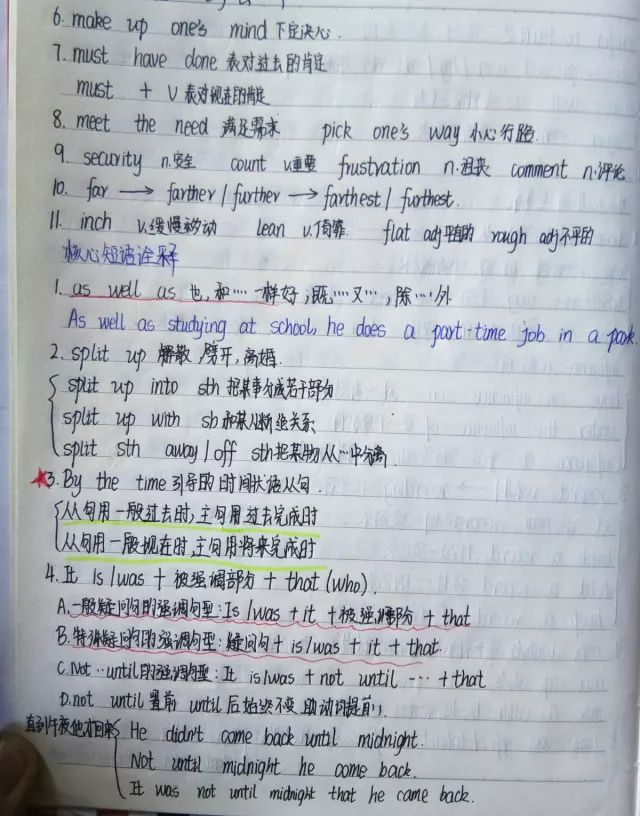 6. make up one's mind 下定决心.
7. must have done 表对过去的肯定
must + V 表对现在的肯定
8. meet the need 满足需求 pick one's way 小心行路
9. security n.安全 count v.重要 frustration n.沮丧 comment n.评论
10. far → farther / further → farthest / furthest.
11. inch v.缓慢移动 lean v.倚靠 flat adj平的 rough adj不平的
核心短语诠释
1. as well as 也, 和……一样好, 既……又…, 除…外
As well as studying at school, he does a part-time job in a park.
2. split up 解散, 劈开, 离婚.
split up into sth 把某事分成若干部分
split up with sb 和某人断绝关系
split sth away / off sth 把某物从…中分离.
★3. By the time 引导的时间状语从句.
从句用一般过去时, 主句用过去完成时
从句用一般现在时, 主句用将来完成时
4. It is/was + 被强调部分 + that (who).
A. 一般疑问句的强调句型: Is/was + it + 被强调部分 + that
B. 特殊疑问句的强调句型: 疑问句 + is/was + it + that.
C. Not…until的强调句型: It is/was + not until … + that
D. not until 置前 until 后始终不变 助动词提前
直到午夜他才回来 He didn't come back until midnight.
Not until midnight he come back.
It was not until midnight that he came back.